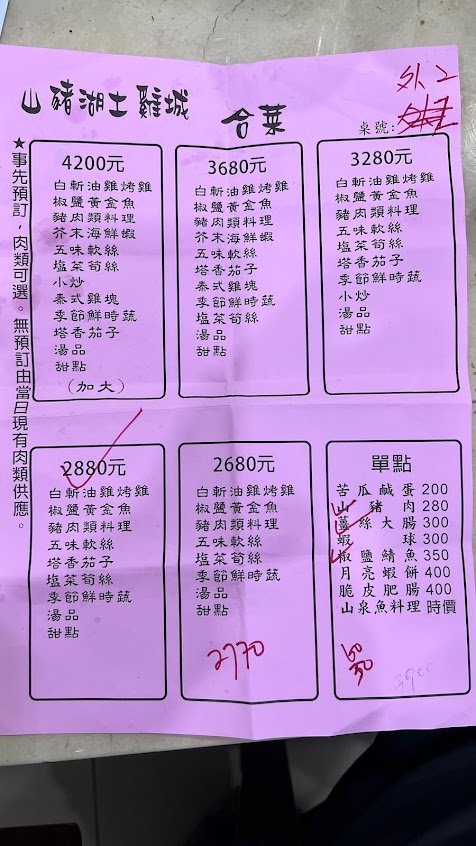 山豬湖土雞城
合菜
外2
桌號:
★事先預訂，肉類可選。無預訂由當日現有肉類供應。
4200元
白斬油雞烤雞
椒鹽黃金魚
豬肉類料理
芥末海鮮蝦
五味軟絲
塩菜筍絲
小炒
泰式雞塊
季節鮮時蔬
塔香茄子
湯品
甜點
(加大)
3680元
白斬油雞烤雞
椒鹽黃金魚
豬肉類料理
芥末海鮮蝦
五味軟絲
塔香茄子
泰式雞塊
季節鮮時蔬
塩菜筍絲
湯品
甜點
3280元
白斬油雞烤雞
椒鹽黃金魚
豬肉類料理
五味軟絲
塩菜筍絲
塔香茄子
季節鮮時蔬
小炒
湯品
甜點
2880元
白斬油雞烤雞
椒鹽黃金魚
豬肉類料理
五味軟絲
塔香茄子
塩菜筍絲
季節鮮時蔬
湯品
甜點
2680元
白斬油雞烤雞
椒鹽黃金魚
豬肉類料理
五味軟絲
塩菜筍絲
季節鮮時蔬
湯品
甜點
2770
單點
苦瓜鹹蛋200
山豬肉280
薑絲大腸300
蝦球300
椒鹽鯖魚350
月亮蝦餅400
脆皮肥腸400
山泉魚料理時價